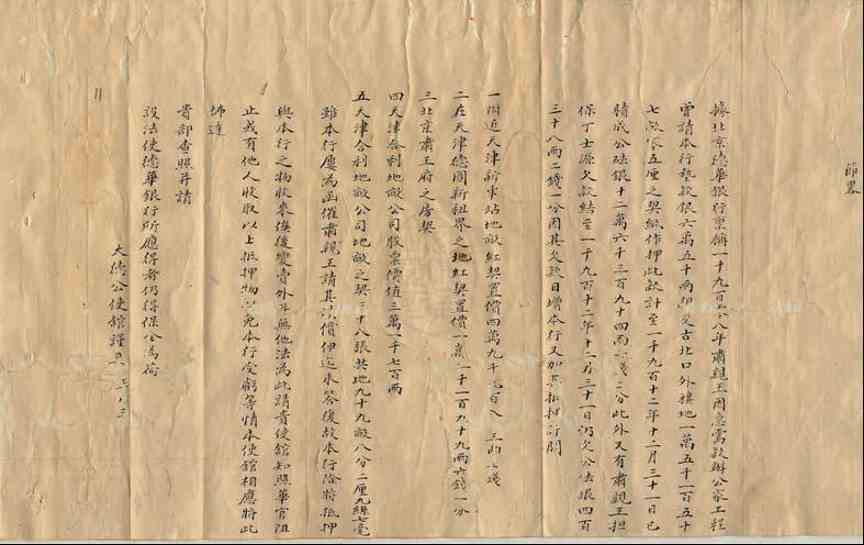 節畧
據北京德華銀行稟稱一千九百零八年肅親王因急需款辦公家工程
曾請本行墊款銀六萬五千兩即交古北口外攘地一萬五千一百五十
七畝零五厘之契紙作押此款計至一千九百十二年十二月三十一日已
積成公砝銀十二萬六千三百九十四兩 錢二分此外又有肅親王担
保丁士源欠款結至一千九百十二年十二月三十一日仍欠公法銀四百
三十八兩二錢一分因其欠款日增本行又加其抵押計開
一附近天津新車站地畝紅契置價四萬九千 百八 三兩 錢
二在天津德國新租界之地紅契置價一萬一千一百九十九兩六錢一分
三北京肅王府之房契
四天津合利地畝公司股票價值三萬一千七百兩
五天津合利地畝公司地畝之契三十八張共地九十九畝八分二厘九絲七毫
雖本行屢為函催肅親王請其決償伊迄未答復故本行除將抵押
與本行之物收來俟後變賣外並無他法為此請貴使館知照華官阻
止或有他人收取以上抵押物以免本行受虧等情本使館相應將此
佈達
貴部查照并請
設法使德華銀行所應得者仍得保全為荷
大德公使館謹具